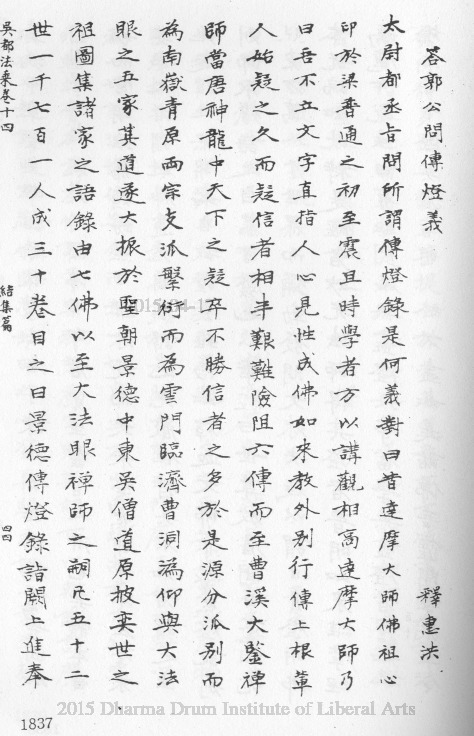 答郭公問傳燈義
釋惠洪
太尉都丞旨問所謂傳燈錄是何義對曰昔達摩大師佛祖心
印於梁普通之初至震旦時學者方以講觀相高達摩大師乃
曰吾不立文字直指人心見性成佛如來教外別行傳上根輩
人始疑之久而疑信者相半艱難險阻六傳而至曹溪大鑒禪
師當唐神龍中天下之疑卒不勝信者之多於是源分派別而
為南嶽青原兩宗支派繁衍而為雲門臨濟曹洞溈仰與大法
眼之五家其道遂大振於聖朝景德中東吳僧道原披奕世之
祖圖集諸家之語錄由七佛以至大法眼禪師之嗣凡五十二
世一千七百一人成三十卷目之曰景德傳燈錄詣闕上進奉
吳都法乘卷十四
結集篇
四四
1837
2015 Dharma Drum Institute of Liberal Arts